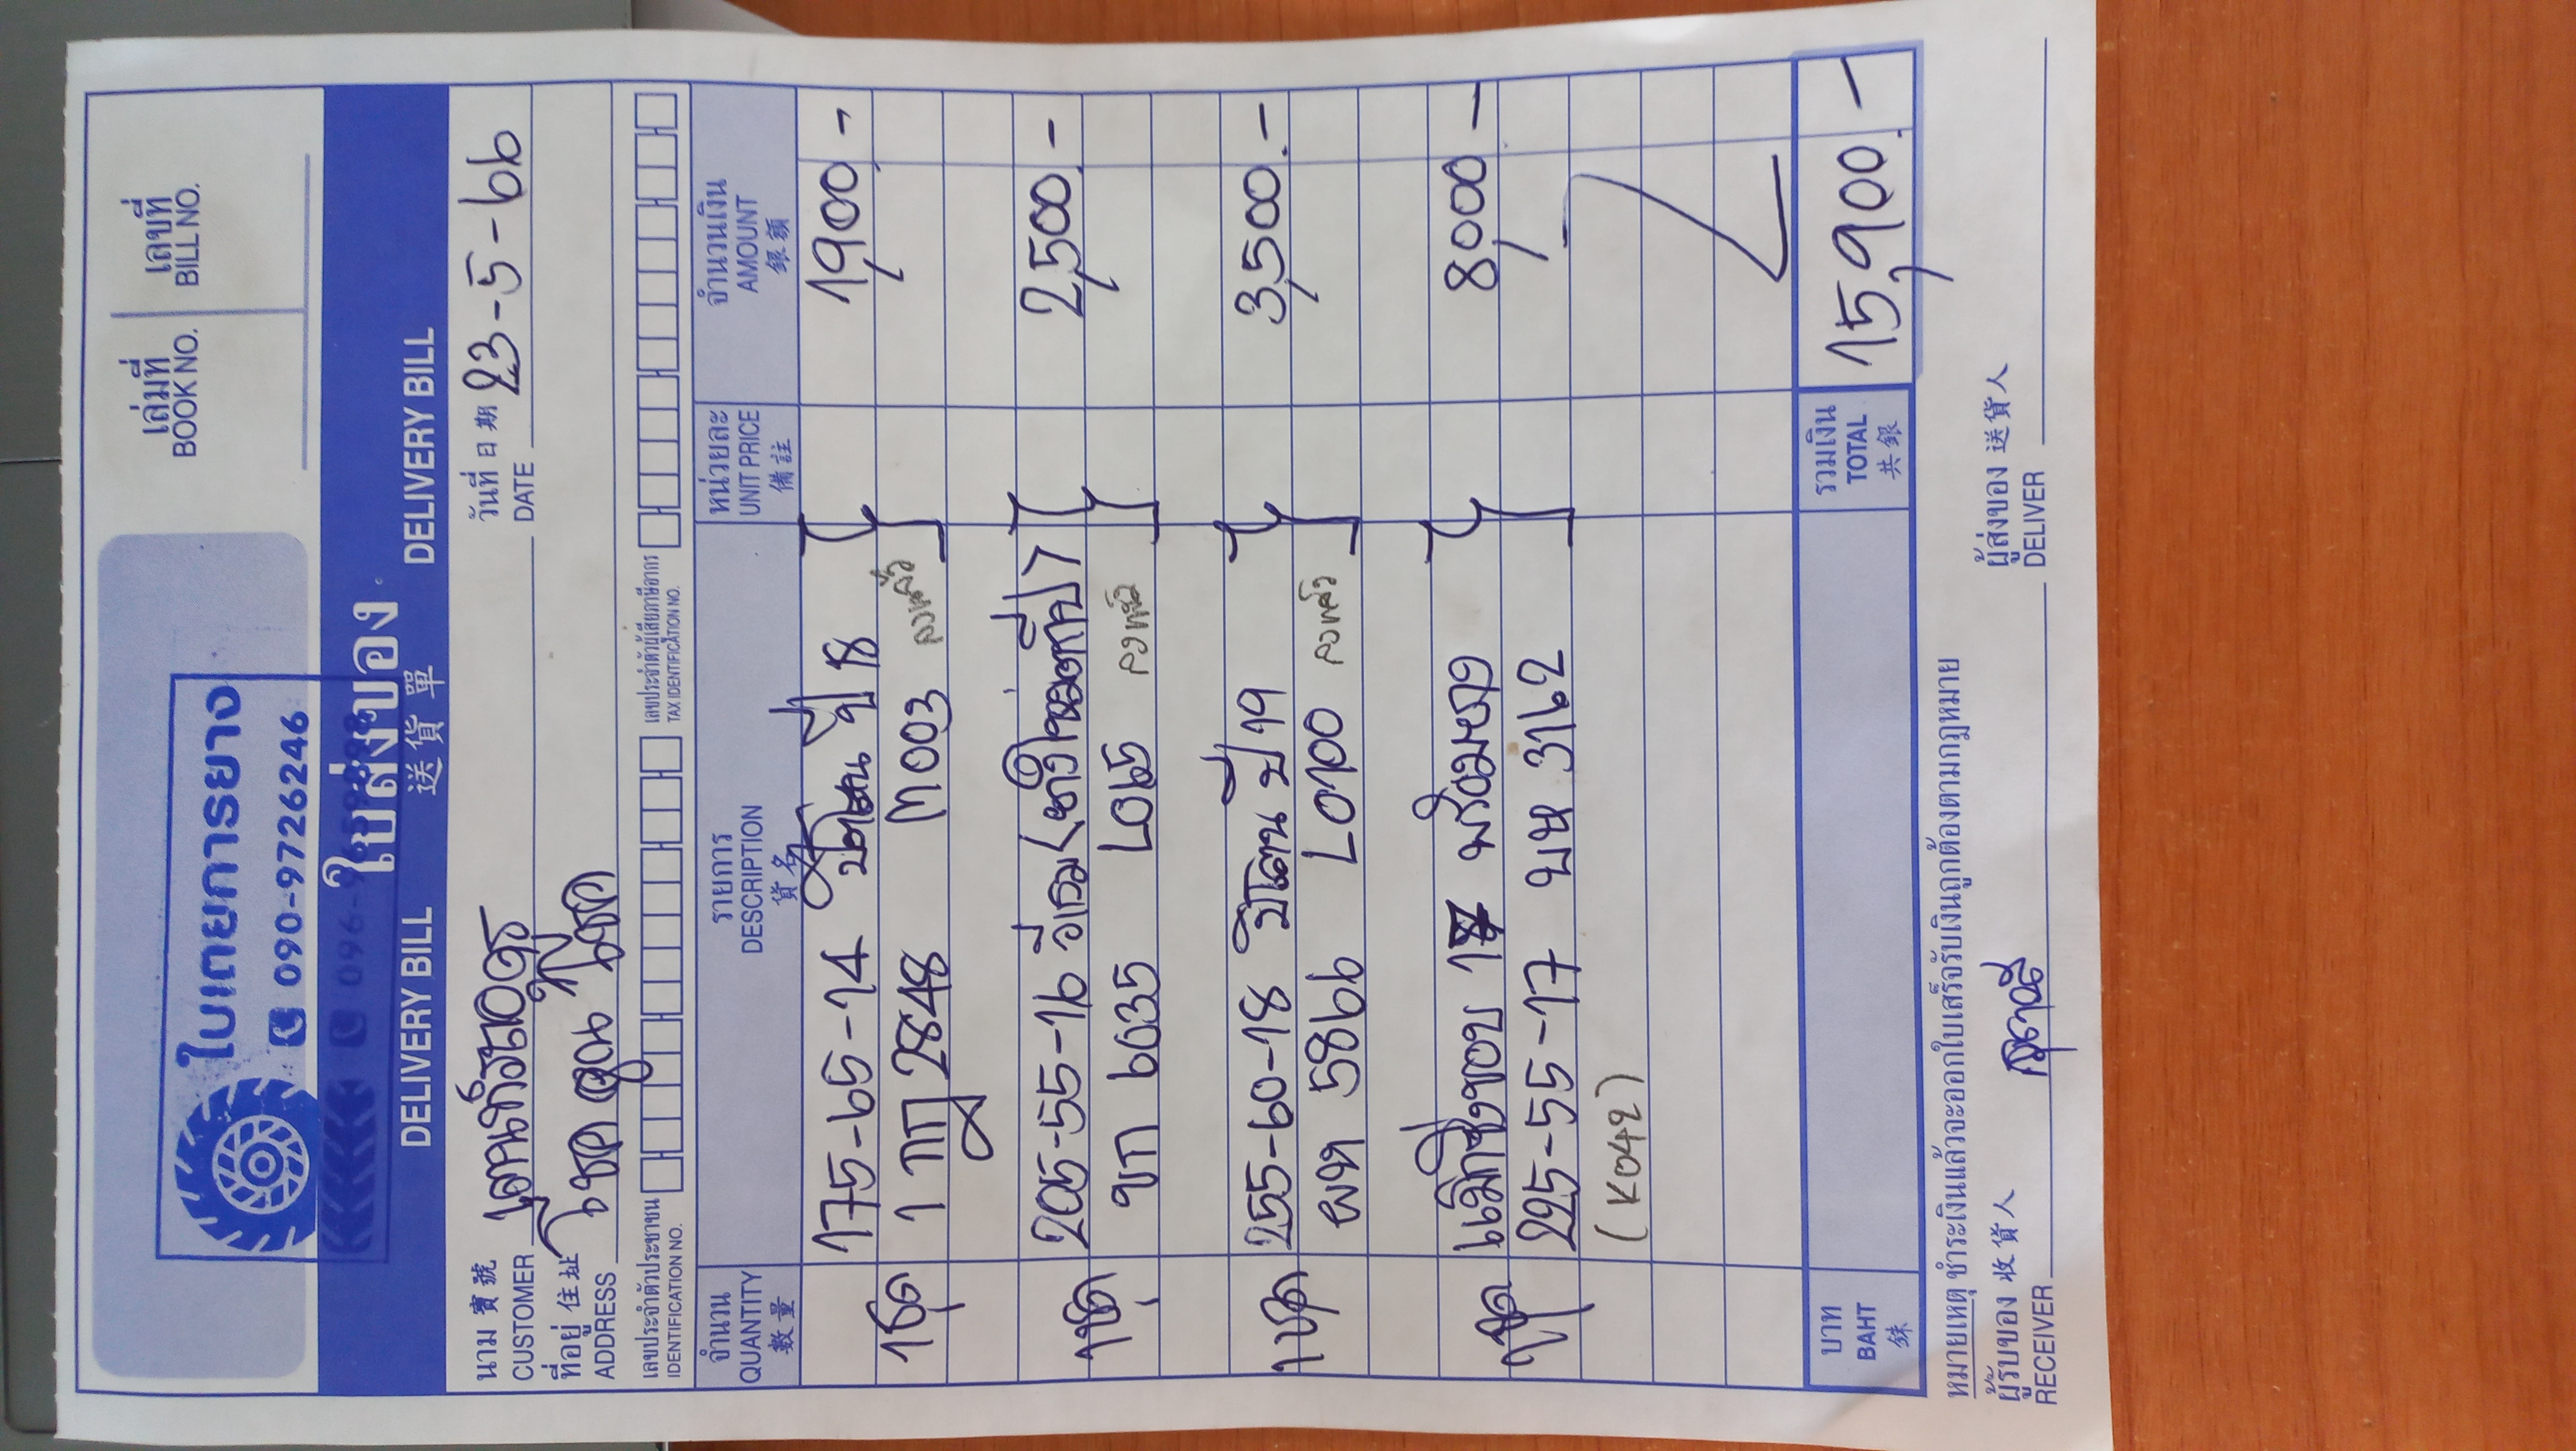 เล่มที่ เลขที่
BOOK NO. BILL NO.
ใบเตยการยาง
090-9726246
ใบส่งของ
DELIVERY BILL 送貨單 DELIVERY BILL
นาม 寶號 วันที่ 日期 23-5-66
CUSTOMER DATE
ที่อยู่ 住址 โชค คูณ โชค
ADDRESS
เลขประจำตัวประชาชน เลขประจำตัวผู้เสียภาษีอากร
IDENTIFICATION NO. TAX IDENTIFICATION NO.
จำนวน รายการ หน่วยละ จำนวนเงิน
QUANTITY DESCRIPTION UNIT PRICE AMOUNT
數量 貨名 備註 銀額
175-65-14 ปี 18 1,900.-
1 ชุด 1 กฎ 2848 M003 ลงแล้ว
205-55-16 2,500.-
1 ชุด ขก 6035 L065 ลงแล้ว
255-60-18 ปี 19 3,500.-
1 ชุด ผห 5866 L0100 ลงแล้ว
แม็กซิ่งขอบ 17 พร้อมยาง 8,000 -
1 ชุด 225-55-17 บน 3162
(K042)
บาท รวมเงิน
BAHT TOTAL 15,900.-
銖 共銀
หมายเหตุ ชำระเงินแล้วจะออกใบเสร็จรับเงินถูกต้องตามกฎหมาย
ผู้รับของ 收貨人 ผู้ส่งของ 送貨人
RECEIVER DELIVER